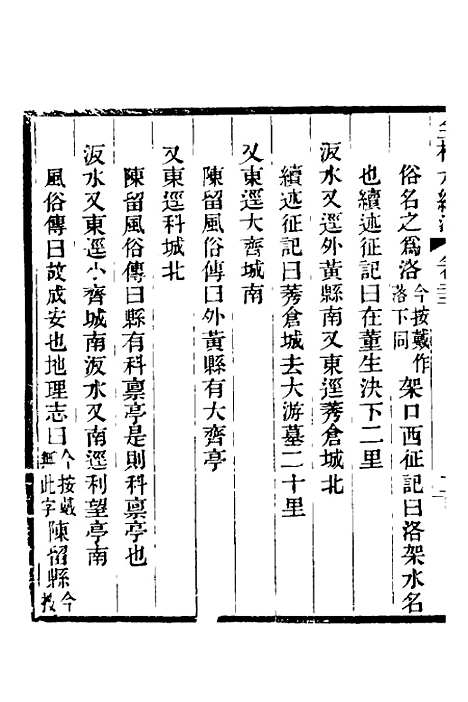 俗名之爲洛今按戴作落下同架口西征記曰洛架水名
也續述征記曰在董生決下二里
汳水又逕外黃縣南又東逕莠倉城北
續述征記曰莠倉城去大游墓二十里
又東逕大齊城南
陳留風俗傳曰外黃縣有大齊亭
又東逕科城北
陳留風俗傳曰縣有科稟亭是則科稟亭也
汳水又東逕小齊城南汳水又南逕利望亭南
風俗傳曰故成安也地理志曰今按戴無此字陳留縣今按